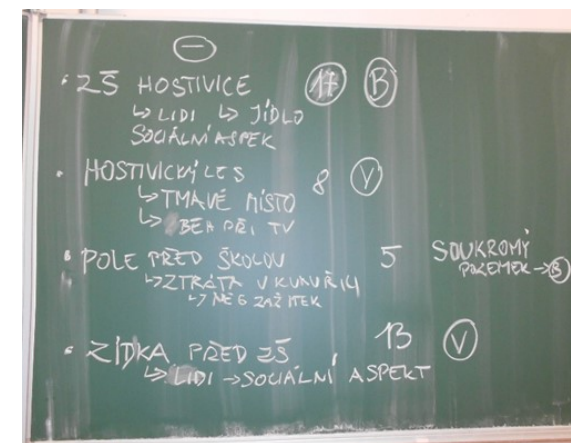 −
• ZŠ HOSTIVICE 17 B
↳ LIDI ↳ JÍDLO
SOCIÁLNÍ ASPEK
• HOSTIVICKÝ LES 8 V
↳ TMAVÉ MÍSTO
↳ BĚH PŘI TV
• POLE PŘED ŠKOLOU 5 SOUKROMÝ
POZEMEK → B
↳ ZTRÁTA V KUKUŘICI
↳ NEG ZÁŽITEK
• ZÍDKA PŘED ZŠ 13 V
↳ LIDI → SOCIÁLNÍ ASPEKT